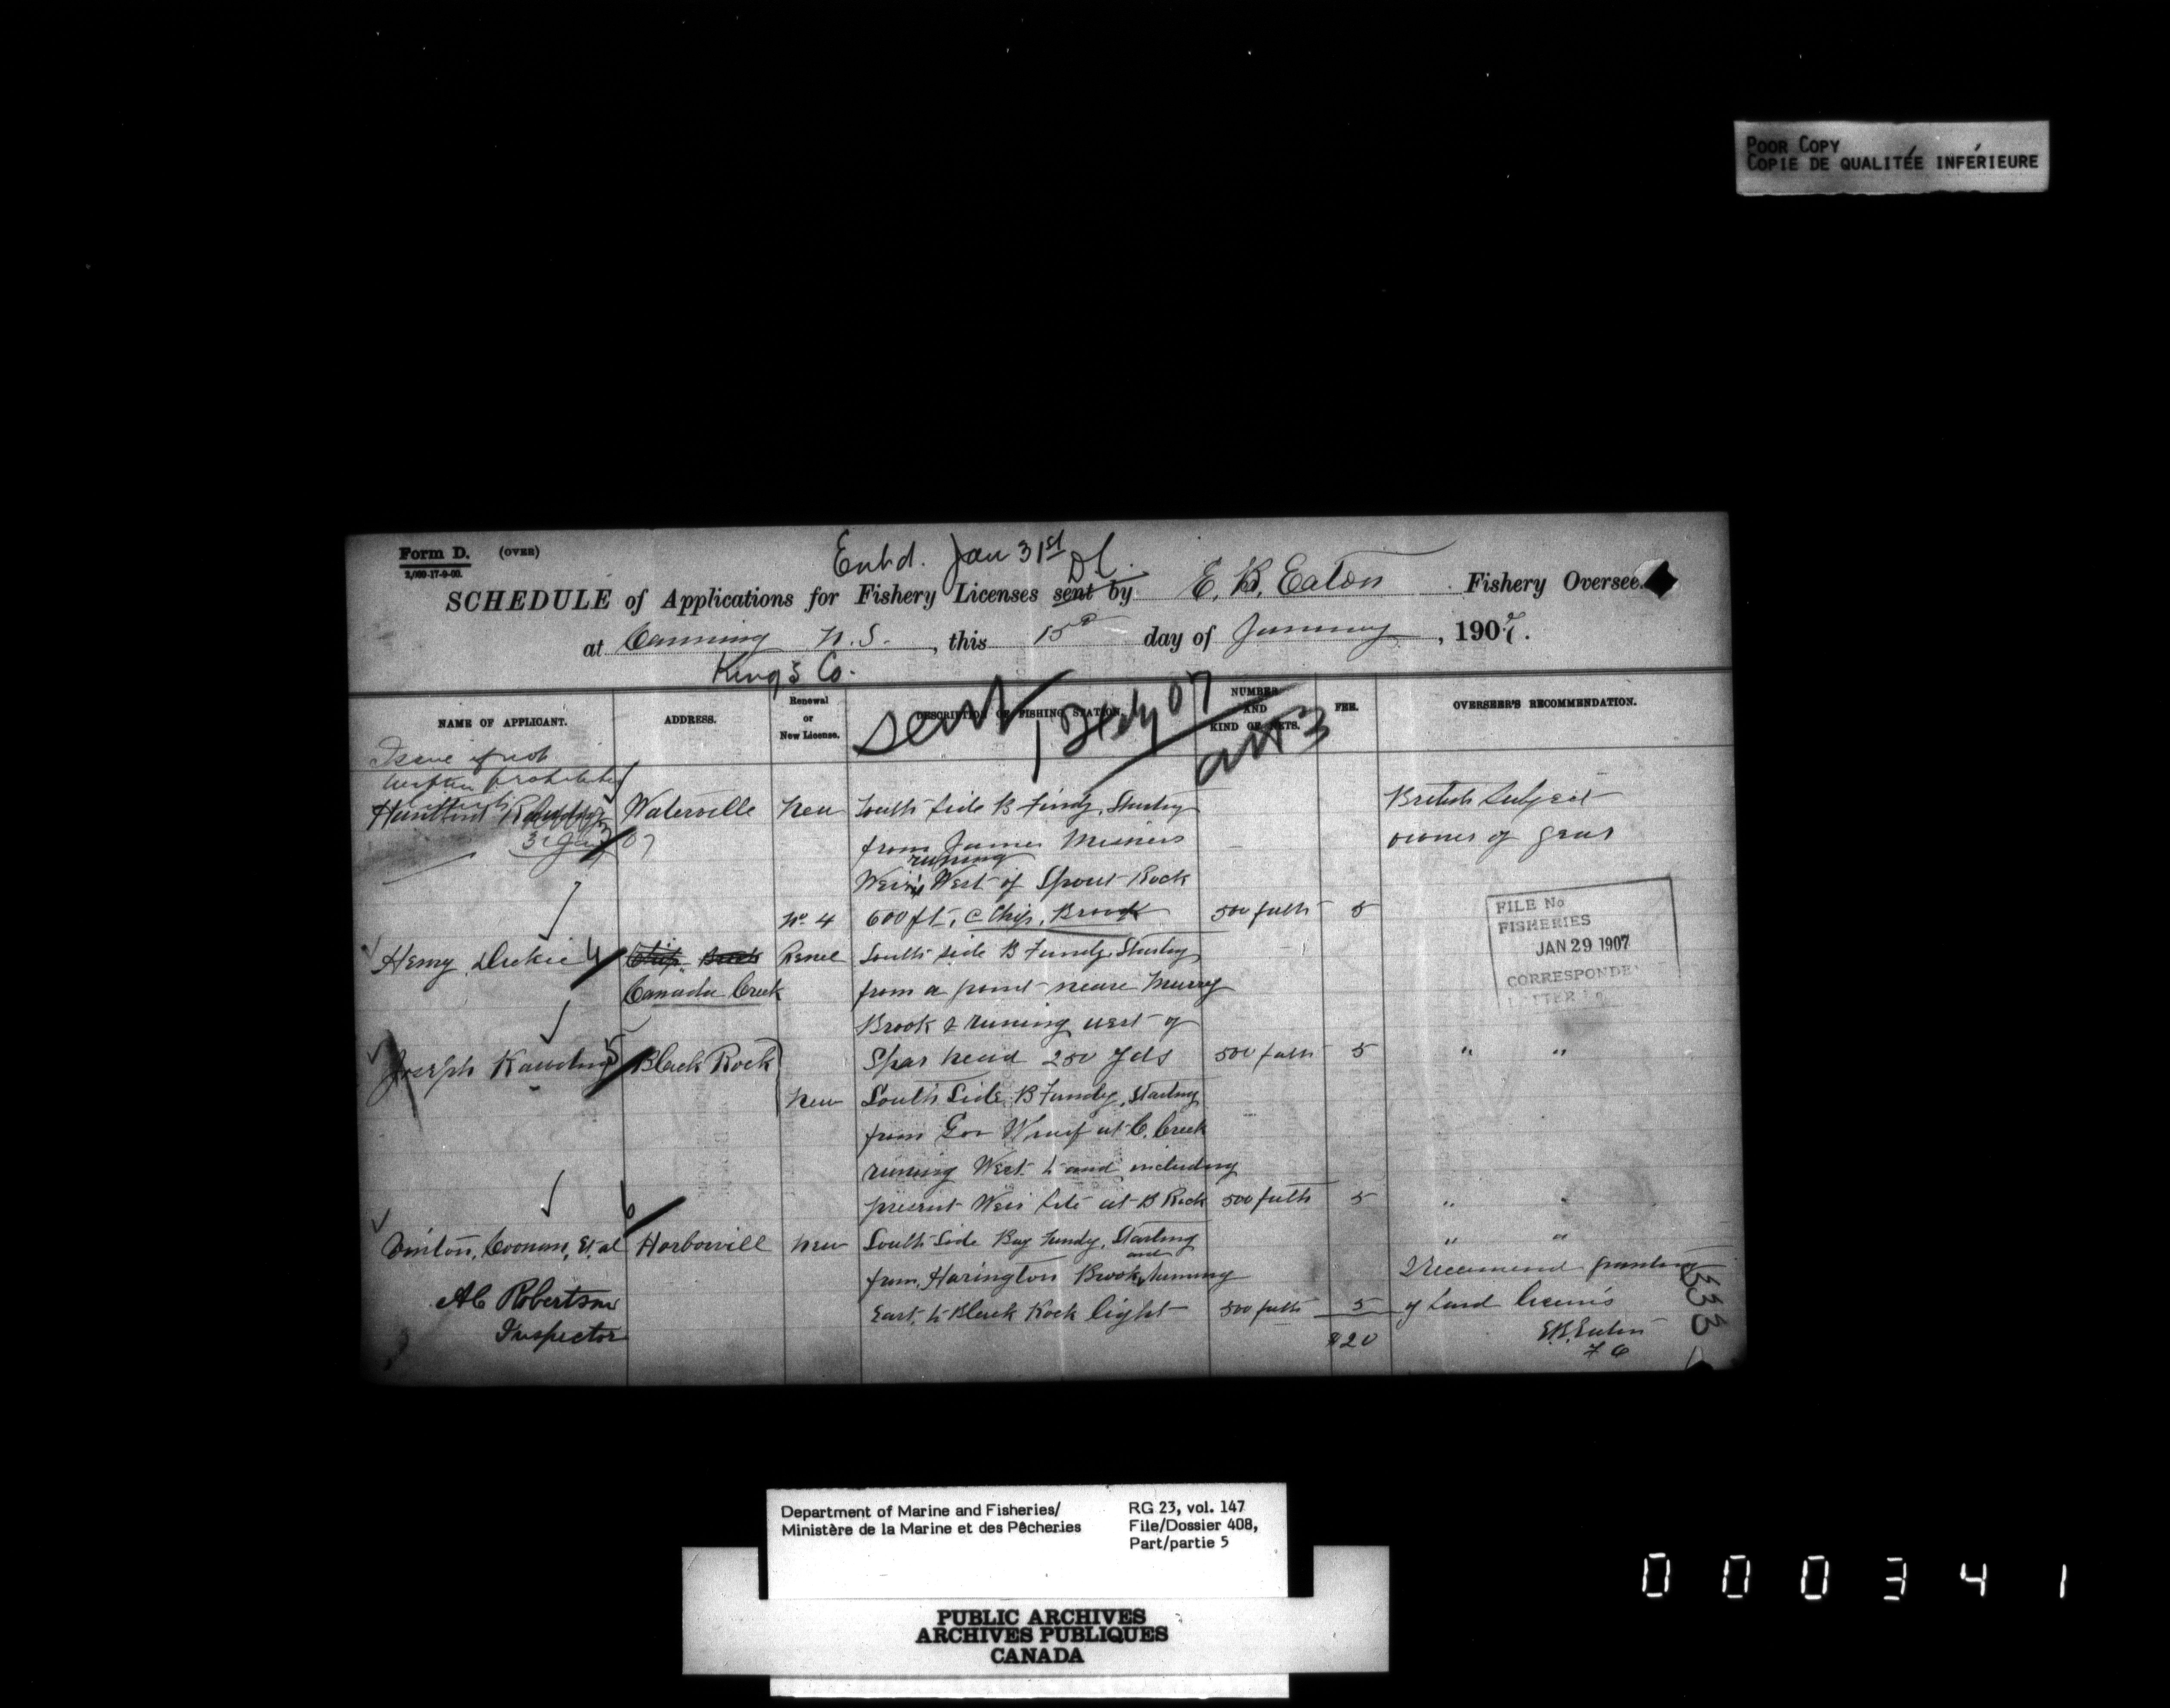 POOR COPY
COPIE DE QUALITÉE INFÉRIEURE
Form D. (OVER)
Entd. Jan 31st
SCHEDULE of Applications for Fishery Licenses sent by E. B. Eaton Fishery Oversee
at Canning N.S., this 15 day of January, 1907.
Kings Co.
NAME OF APPLICANT.
ADDRESS.
Renewal
or
New License.
DESCRIPTION OF FISHING STATION.
NUMBER
AND
KIND OF NETS.
FEE.
OVERSEER'S RECOMMENDATION.
sent
Issue if not
prohibited
Waterville New South Side B Fundy, Starting British Subject
from James owner of gear
running
Weir West of Spout Rock
No 4 600 ft, C Chip, Brook 500 fath 5
Henry Dickie 4 Chip Brook Renel South side B Fundy Starting
Canada Creek from a point neare Murray
Brook & runing west of
Joseph 5 Black Rock Spar head 250 yds 500 fath 5 " "
New South Side B Fundy, Starting
from Gov Wharf at C. Creek
running West to and including
present Weir site at B Rock 500 fath 5 " "
6
Et. al Harborvill New South Side Bay Fundy, Starting " "
from, Harington Brook, and runing I recommend granting
A C Robertson East to Black Rock light 500 fath 5 of
Inspector $20 E.B. Eaton
F O
333
FILE No
FISHERIES
JAN 29 1907
CORRESPONDE
Department of Marine and Fisheries/
Ministère de la Marine et des Pêcheries
RG 23, vol. 147
File/Dossier 408,
Part/partie 5
PUBLIC ARCHIVES
ARCHIVES PUBLIQUES
CANADA
000341